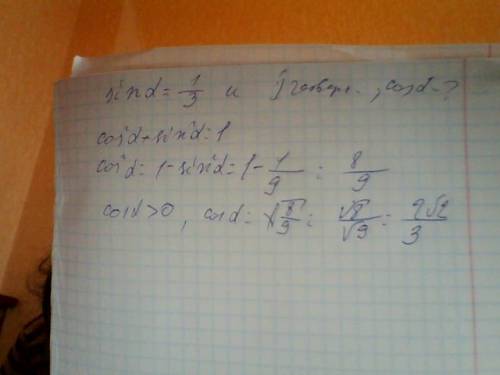 sin α = 1/3 и I четверт., cos α - ?
cos²α + sin²α = 1
cos²α = 1 - sin²α = 1 - 1/9 = 8/9
cos α > 0, cos α = √8/9 = √8/√9 = 2√2/3